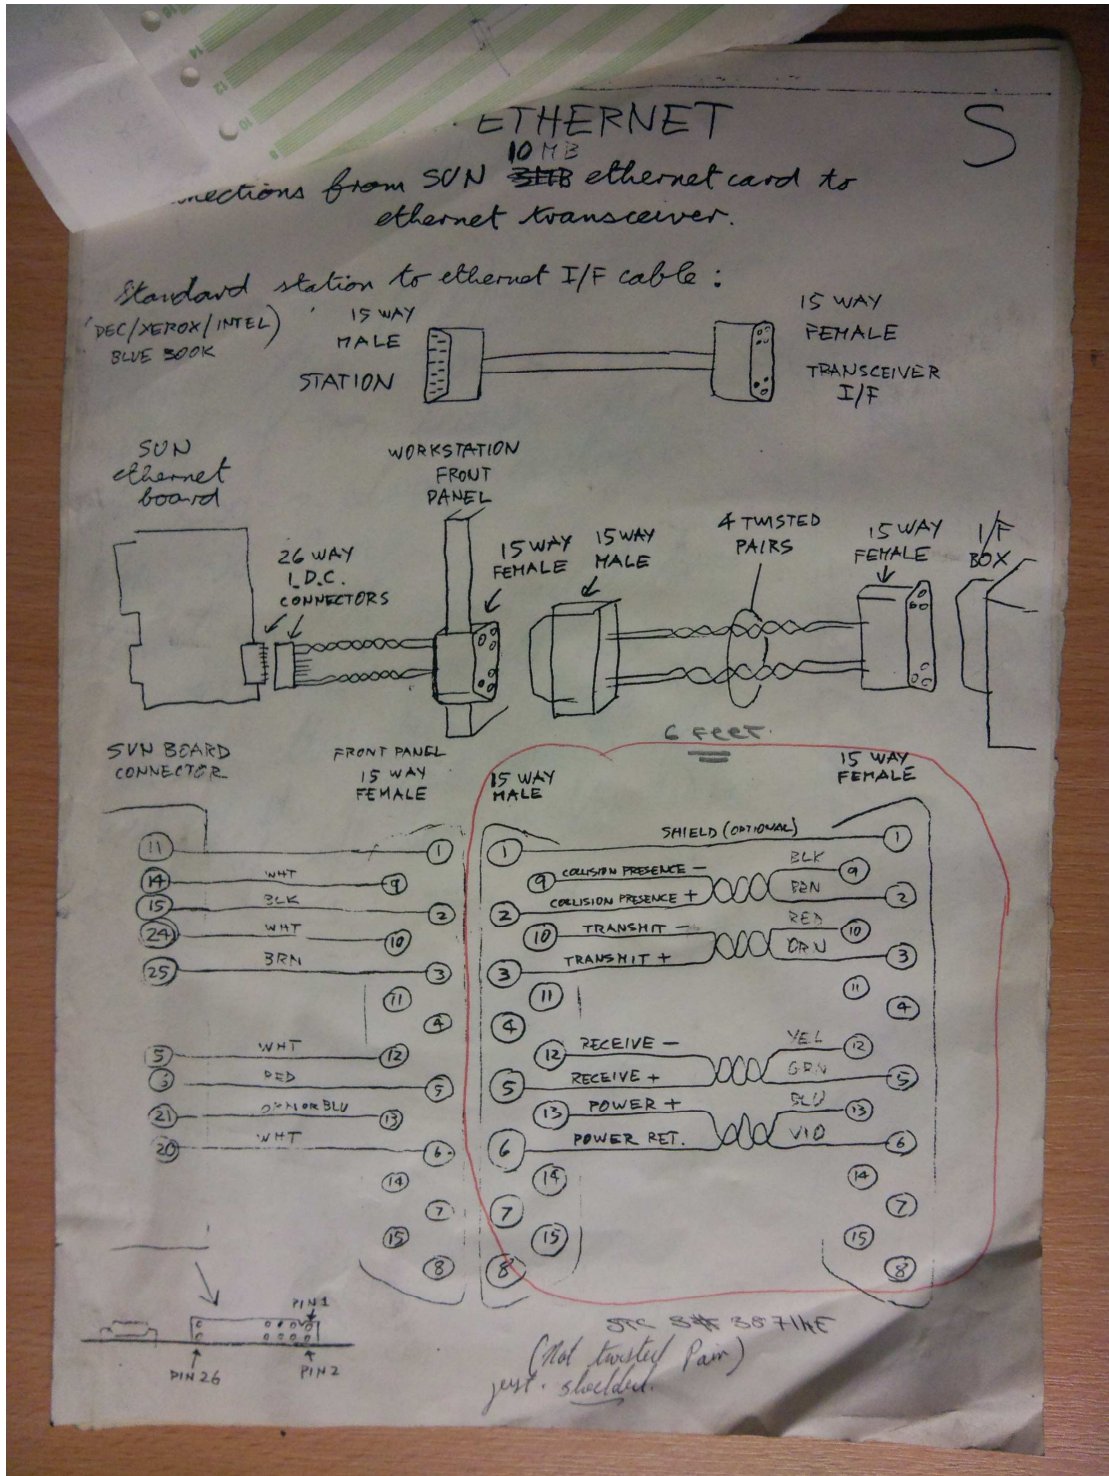 14
12
10
8
18
ETHERNET
S
10 MB
nections from SUN 3MB ethernet card to
ethernet transceiver.
Standard station to ethernet I/F cable:
(DEC/XEROX/INTEL)
BLUE BOOK
15 WAY
MALE
STATION
15 WAY
FEMALE
TRANSCEIVER
I/F
SUN
ethernet
board
WORKSTATION
FRONT
PANEL
26 WAY
I.D.C.
CONNECTORS
15 WAY
FEMALE
15 WAY
MALE
4 TWISTED
PAIRS
15 WAY
FEMALE
I/F
BOX
6 FEET.
SUN BOARD
CONNECTOR
FRONT PANEL
15 WAY
FEMALE
15 WAY
MALE
15 WAY
FEMALE
11 1
14 WHT 9
15 BLK 2
24 WHT 10
25 BRN 3
11
4
5 WHT 12
3 RED 5
21 ORN OR BLU 13
20 WHT 6
14
7
15
8
1 SHIELD (OPTIONAL) 1
9 COLLISION PRESENCE - BLK 9
2 COLLISION PRESENCE + BRN 2
10 TRANSMIT - RED 10
3 TRANSMIT + ORN 3
11 11
4 4
12 RECEIVE - YEL 12
5 RECEIVE + GRN 5
13 POWER + BLU 13
6 POWER RET. VIO 6
14 14
7 7
15 15
8 8
PIN 1
PIN 26
PIN 2
(Not twisted Pair)
just. shielded.